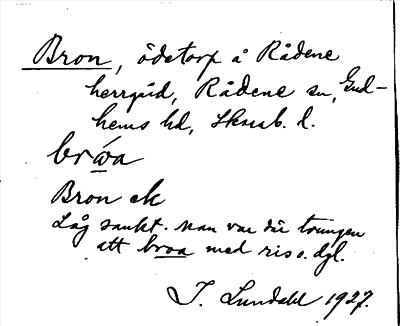 Bron, ödetorp å Rådene
herrgård, Rådene sn, Gud-
hems hd, Skarab. l.
bróa
Bron ek
Låg sankt. Man var där tvungen
att broa med ris o. dyl.
I. Lundahl 1927.